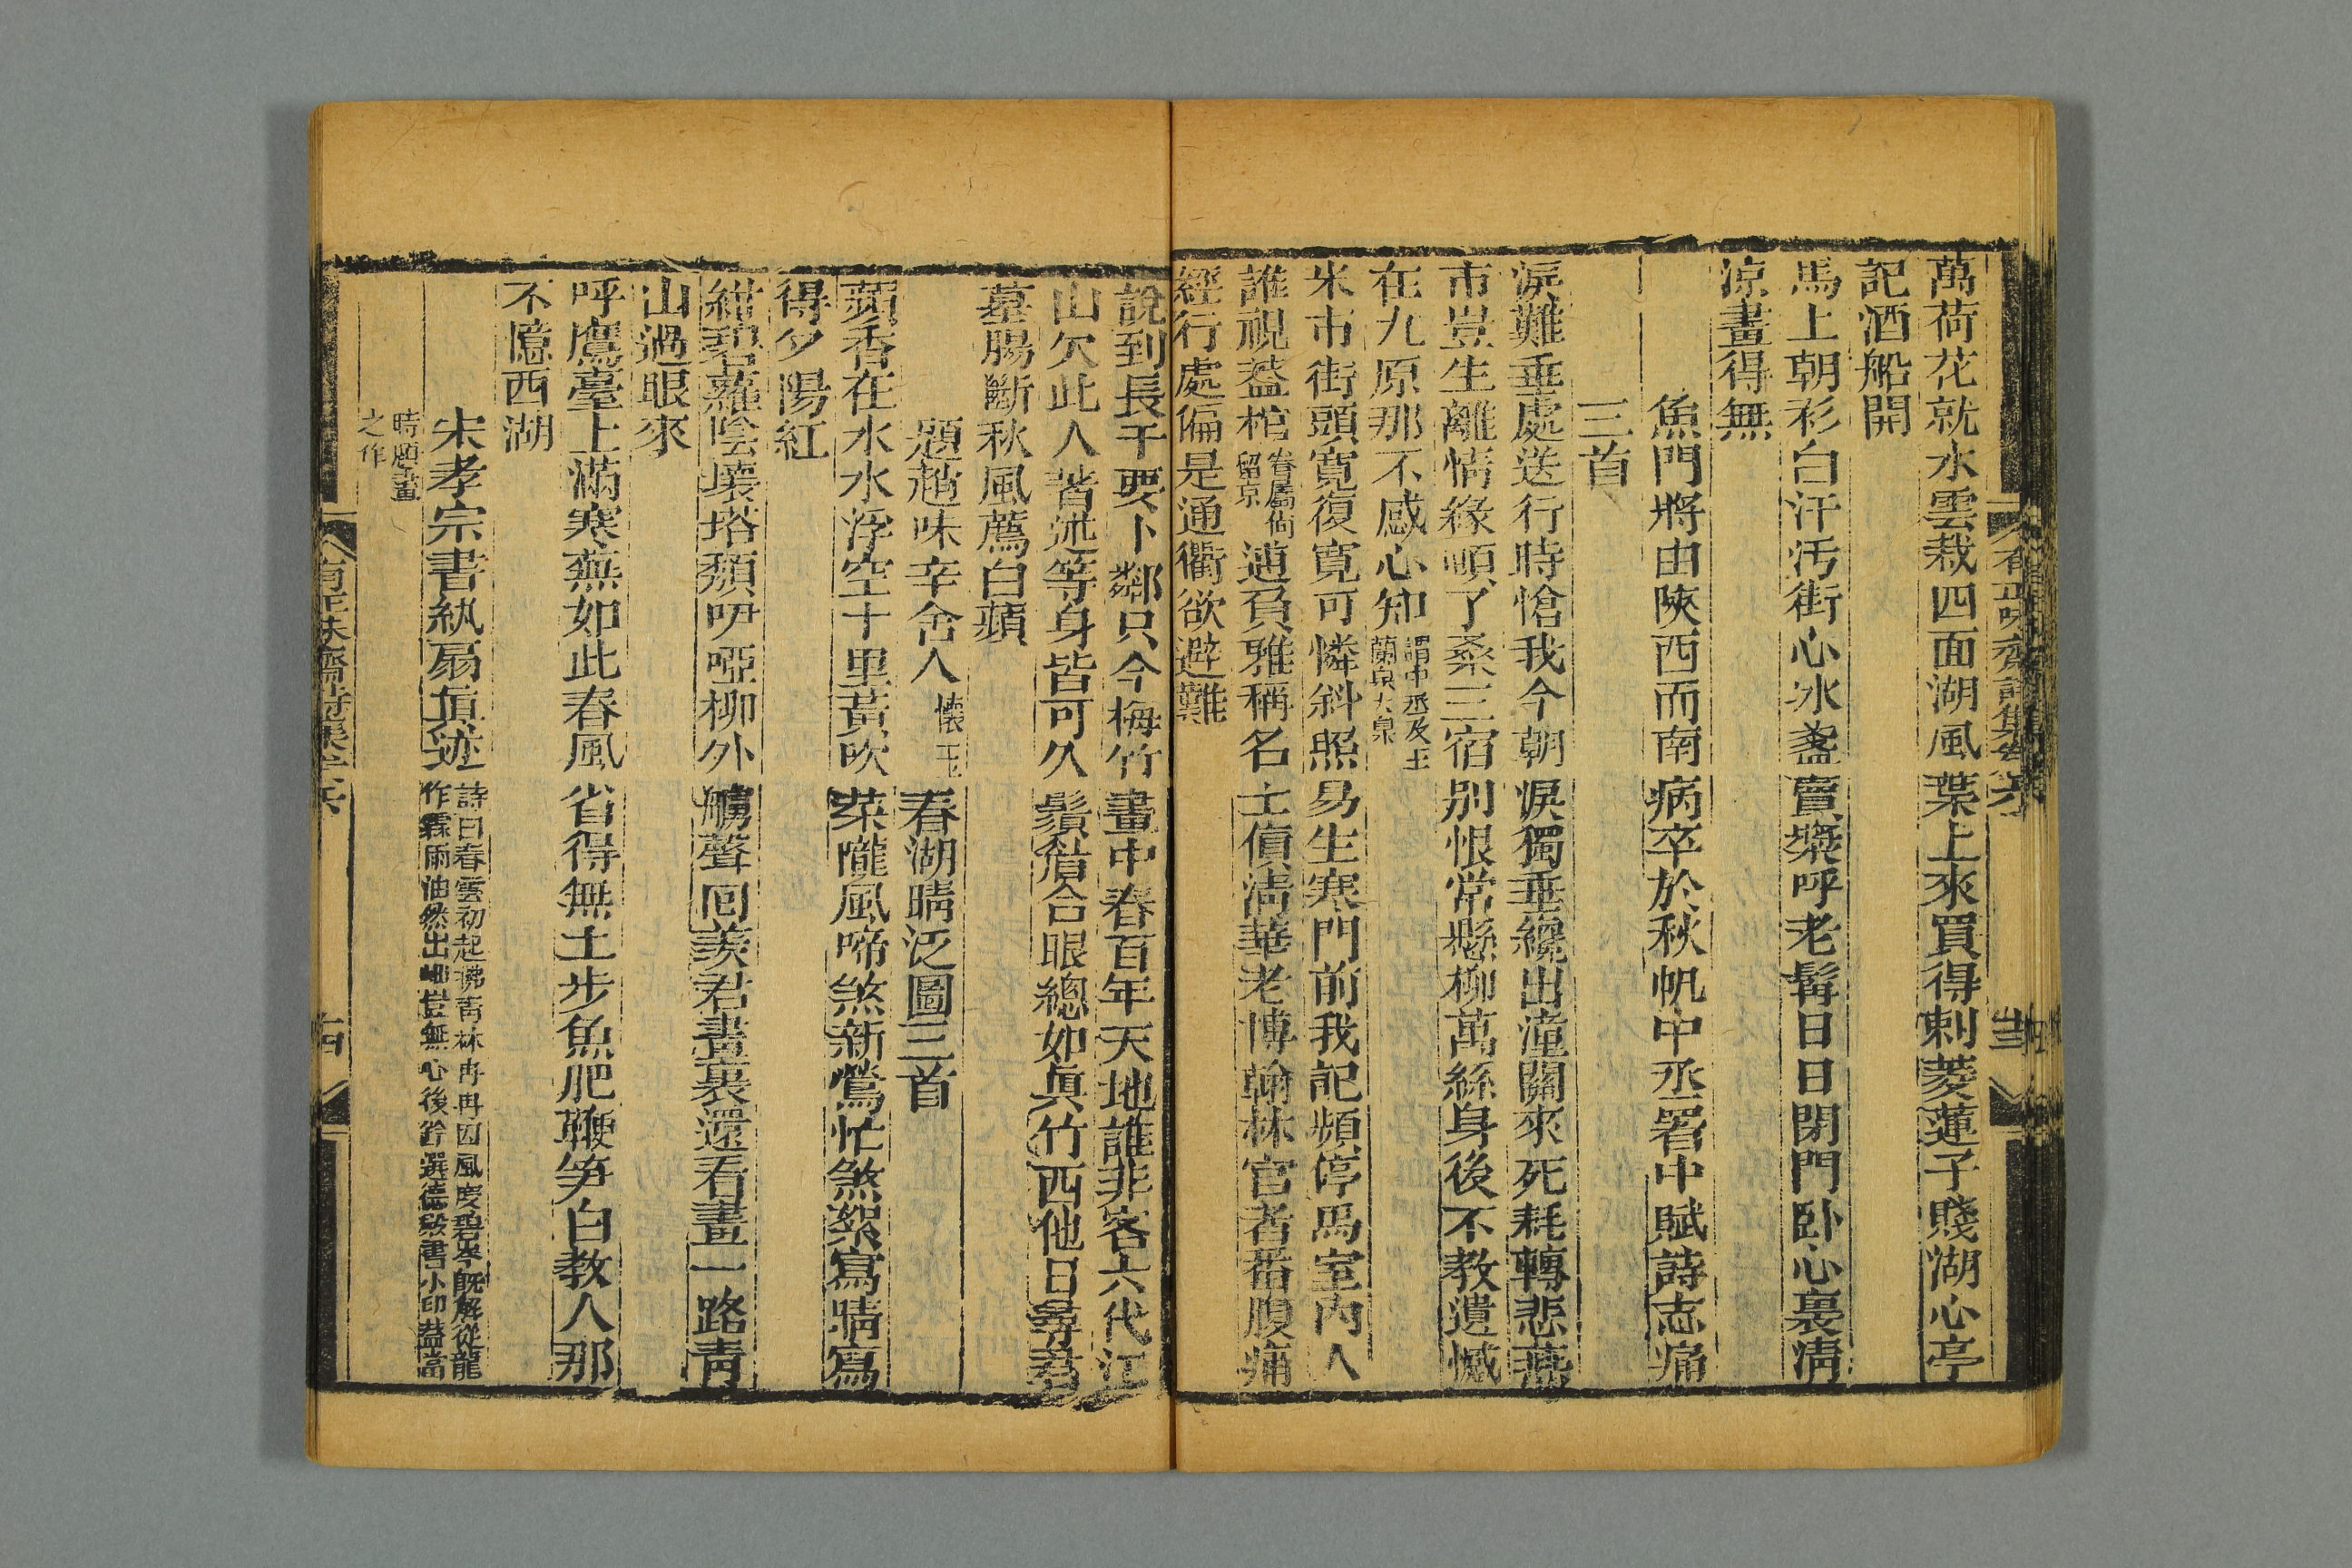 有正味齋詩集卷六
萬荷花就水雲栽四面湖風葉上來買得刺菱蓮子賤湖心亭
記酒船開
馬上朝衫白汗汚街心冰盞賣漿呼老髯日日閉門卧心裏淸
涼畫得無
魚門將由陝西而南病卒於秋帆中丞署中賦詩志痛
三首
淚難垂處送行時愴我今朝淚獨垂纔出潼關來死耗轉悲燕
市豈生離情緣頓了桑三宿別恨常懸柳萬絲身後不教遺憾
在九原那不感心知謂中丞及王蘭泉大泉
米市街頭寛復寛可憐斜照易生寒門前我記頻停馬室內人
誰視蓋棺眷屬尙留京逋負雅稱名士債淸華老博翰林官者番腹痛
經行處偏是通衢欲避難
說到長干要卜鄰只今梅竹畫中春百年天地誰非客六代江
山欠此人著述等身皆可久鬚眉合眼總如眞竹西他日尋君
墓腸斷秋風薦白蘋
題趙味辛舍人懷玉春湖晴泛圖三首
蘋香在水水浮空十里黃吹菜隴風啼煞新鶯忙煞絮寫晴寫
得夕陽紅
紺碧蘿陰壞塔頽吚啞柳外艣聲回羨君畫裏還看畫一路靑
山過眼來
呼鷹臺上滿寒蕪如此春風省得無土步魚肥鞭笋白教人那
不憶西湖
宋孝宗書紈扇眞迹詩曰春雲初起拂靑林冉冉因風度碧岑旣解從龍作霖雨油然出岫豈無心後鈐選德殿書小印葢當
時題畫之作
有正味齋詩集卷六
十四